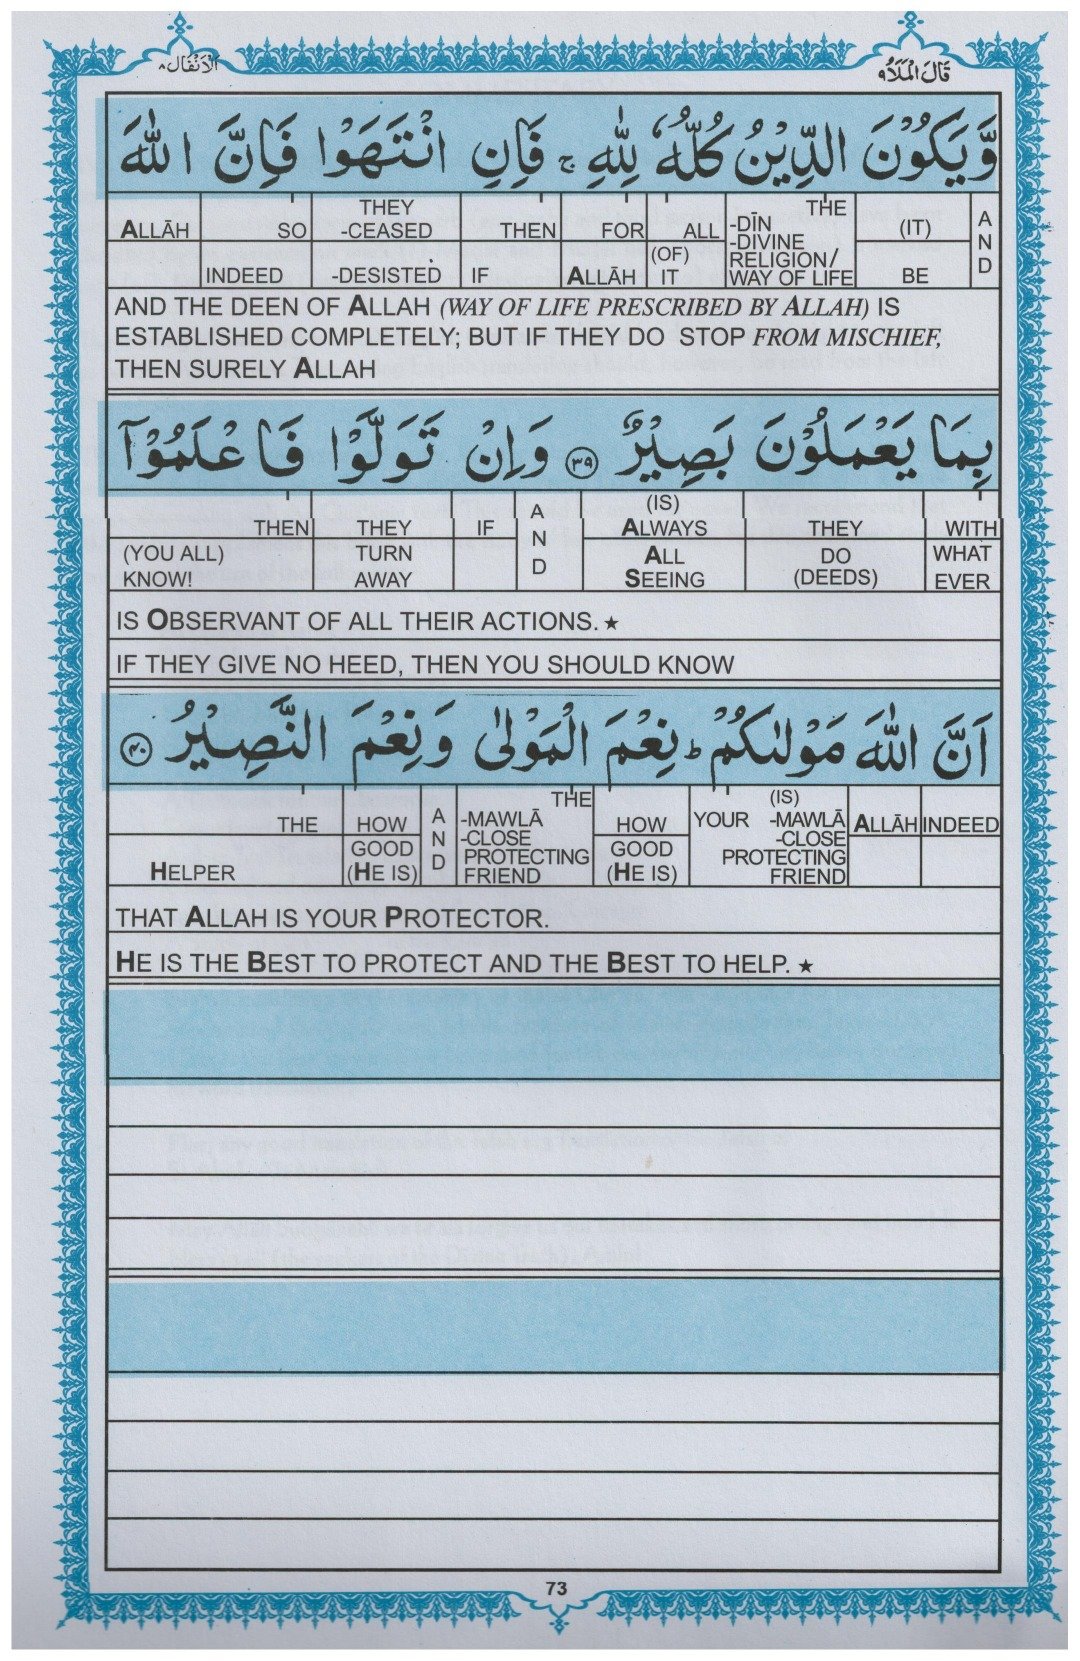 الانفال ٨
قال الملا ٩
وَّيَكُوْنَ الدِّيْنُ كُلُّهٗ لِلّٰهِ ۚ فَاِنِ انْتَهَوْا فَاِنَّ اللّٰهَ
AND (IT) BE THE -DĪN -DIVINE RELIGION/ WAY OF LIFE ALL (OF) IT FOR ALLĀH THEN IF THEY -CEASED -DESISTED SO INDEED ALLĀH
AND THE DEEN OF ALLAH (WAY OF LIFE PRESCRIBED BY ALLAH) IS
ESTABLISHED COMPLETELY; BUT IF THEY DO STOP FROM MISCHIEF,
THEN SURELY ALLAH
بِمَا يَعْمَلُوْنَ بَصِيْرٌ ﴿٣٩﴾ وَاِنْ تَوَلَّوْا فَاعْلَمُوْٓا
WITH WHAT EVER THEY DO (DEEDS) (IS) ALWAYS ALL SEEING AND IF THEY TURN AWAY THEN (YOU ALL) KNOW!
IS OBSERVANT OF ALL THEIR ACTIONS. ★
IF THEY GIVE NO HEED, THEN YOU SHOULD KNOW
اَنَّ اللّٰهَ مَوْلٰىكُمْ ؕ نِعْمَ الْمَوْلٰى وَنِعْمَ النَّصِيْرُ ﴿٤٠﴾
INDEED ALLĀH (IS) YOUR -MAWLĀ -CLOSE PROTECTING FRIEND HOW GOOD (HE IS) THE -MAWLĀ -CLOSE PROTECTING FRIEND AND HOW GOOD (HE IS) THE HELPER
THAT ALLAH IS YOUR PROTECTOR.
HE IS THE BEST TO PROTECT AND THE BEST TO HELP. ★
73